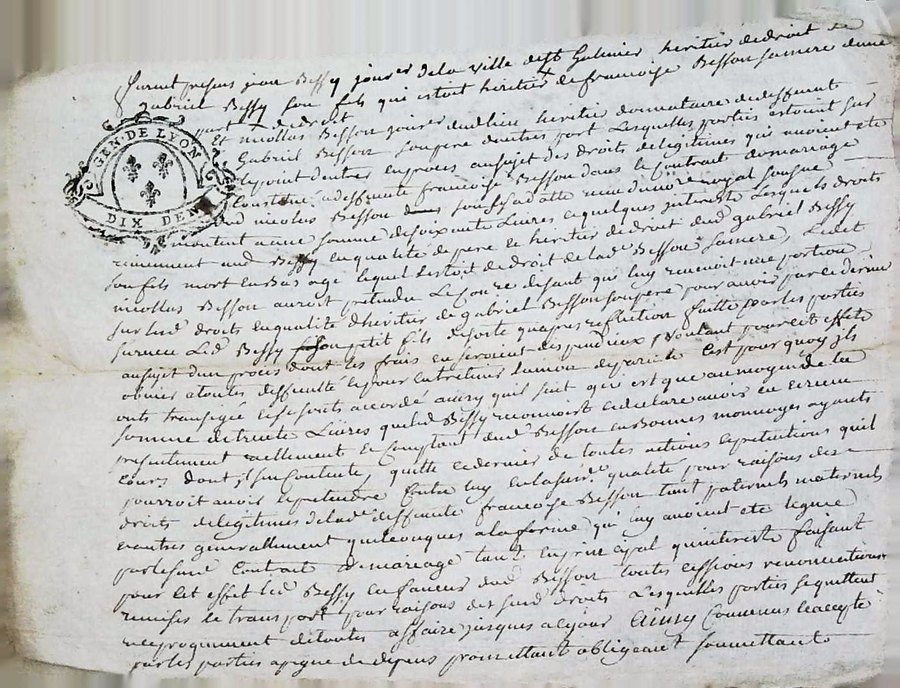 furent presens jean Bessy jour.er de la ville de st Galmier heritier de droit de
gabriel Bessy son fils qui estoit heritier de francoise Besson sa mere dune
part de droit
Et nicollas Besson jour.er dudit lieu heritier donnataire de deffunt
GEN. DE LYON
DIX DEN
Gabriel Besson son pere dautre part Lesquelles parties estoint sur
le point dentrer en proces au sujet des droits de legitimes qui avoient ete
Constitué a deffunte francoise Besson dans le Contrat de mariage
dud nicolas Besson notre royal soussigné
montent a une somme de soixante Livres et quelques interests Lesquels droits
aud Bessy en qualité de pere et heritier de droit dud gabriel Bessy
son fils mort en bas age lequel estoit de droit de lad.e Besson sa mere, Ledit
nicollas Besson auroit pretendu Le contre disant qui luy revenoit une portion
sur lesd droits en qualité dheritier de gabriel Besson son pere pour avoir par ce dernier
survecu Led Bessy son petit fils de sorte quapres reflection faitte par les parties
au sujet dun proces dont les frais en seroient dispendieux voulant pour cet effet
obvier a toutes difficulté et pour entretenir lamour de parente Cest pourquoy ils
ont transigé et se sont accordé ainsy quil suit qui est que au moyen de la
somme de trente Livres que led Bessy reconnoist et declare avoir eu et receu
presentement reellement et Comptant dud Besson en bonnes monnoyes ayants
cours dont il sen Contente, quitte ce dernier de toutes actions et petentions quil
pourroit avoir et pretendre Contre luy en lasusd.e qualité pour raisons des
droits de legitimes de lad.e deffunte francoise Besson tant paternels maternels
et autres generallement quelconques a la forme qui luy avoient ete legué
par le susd Contrat de mariage tant en principal quinterests faisant
pour cet effet led Bessy en faveur dud Besson toutes cessions renonciations
remises et transport pour raisons des susd droits Lesquelles parties se quittent
reciproquement de toutes affaire jusques a ce jour Ainsy Convenus et accepté
par les parties a peyne de depens promettant obligeant soumettants